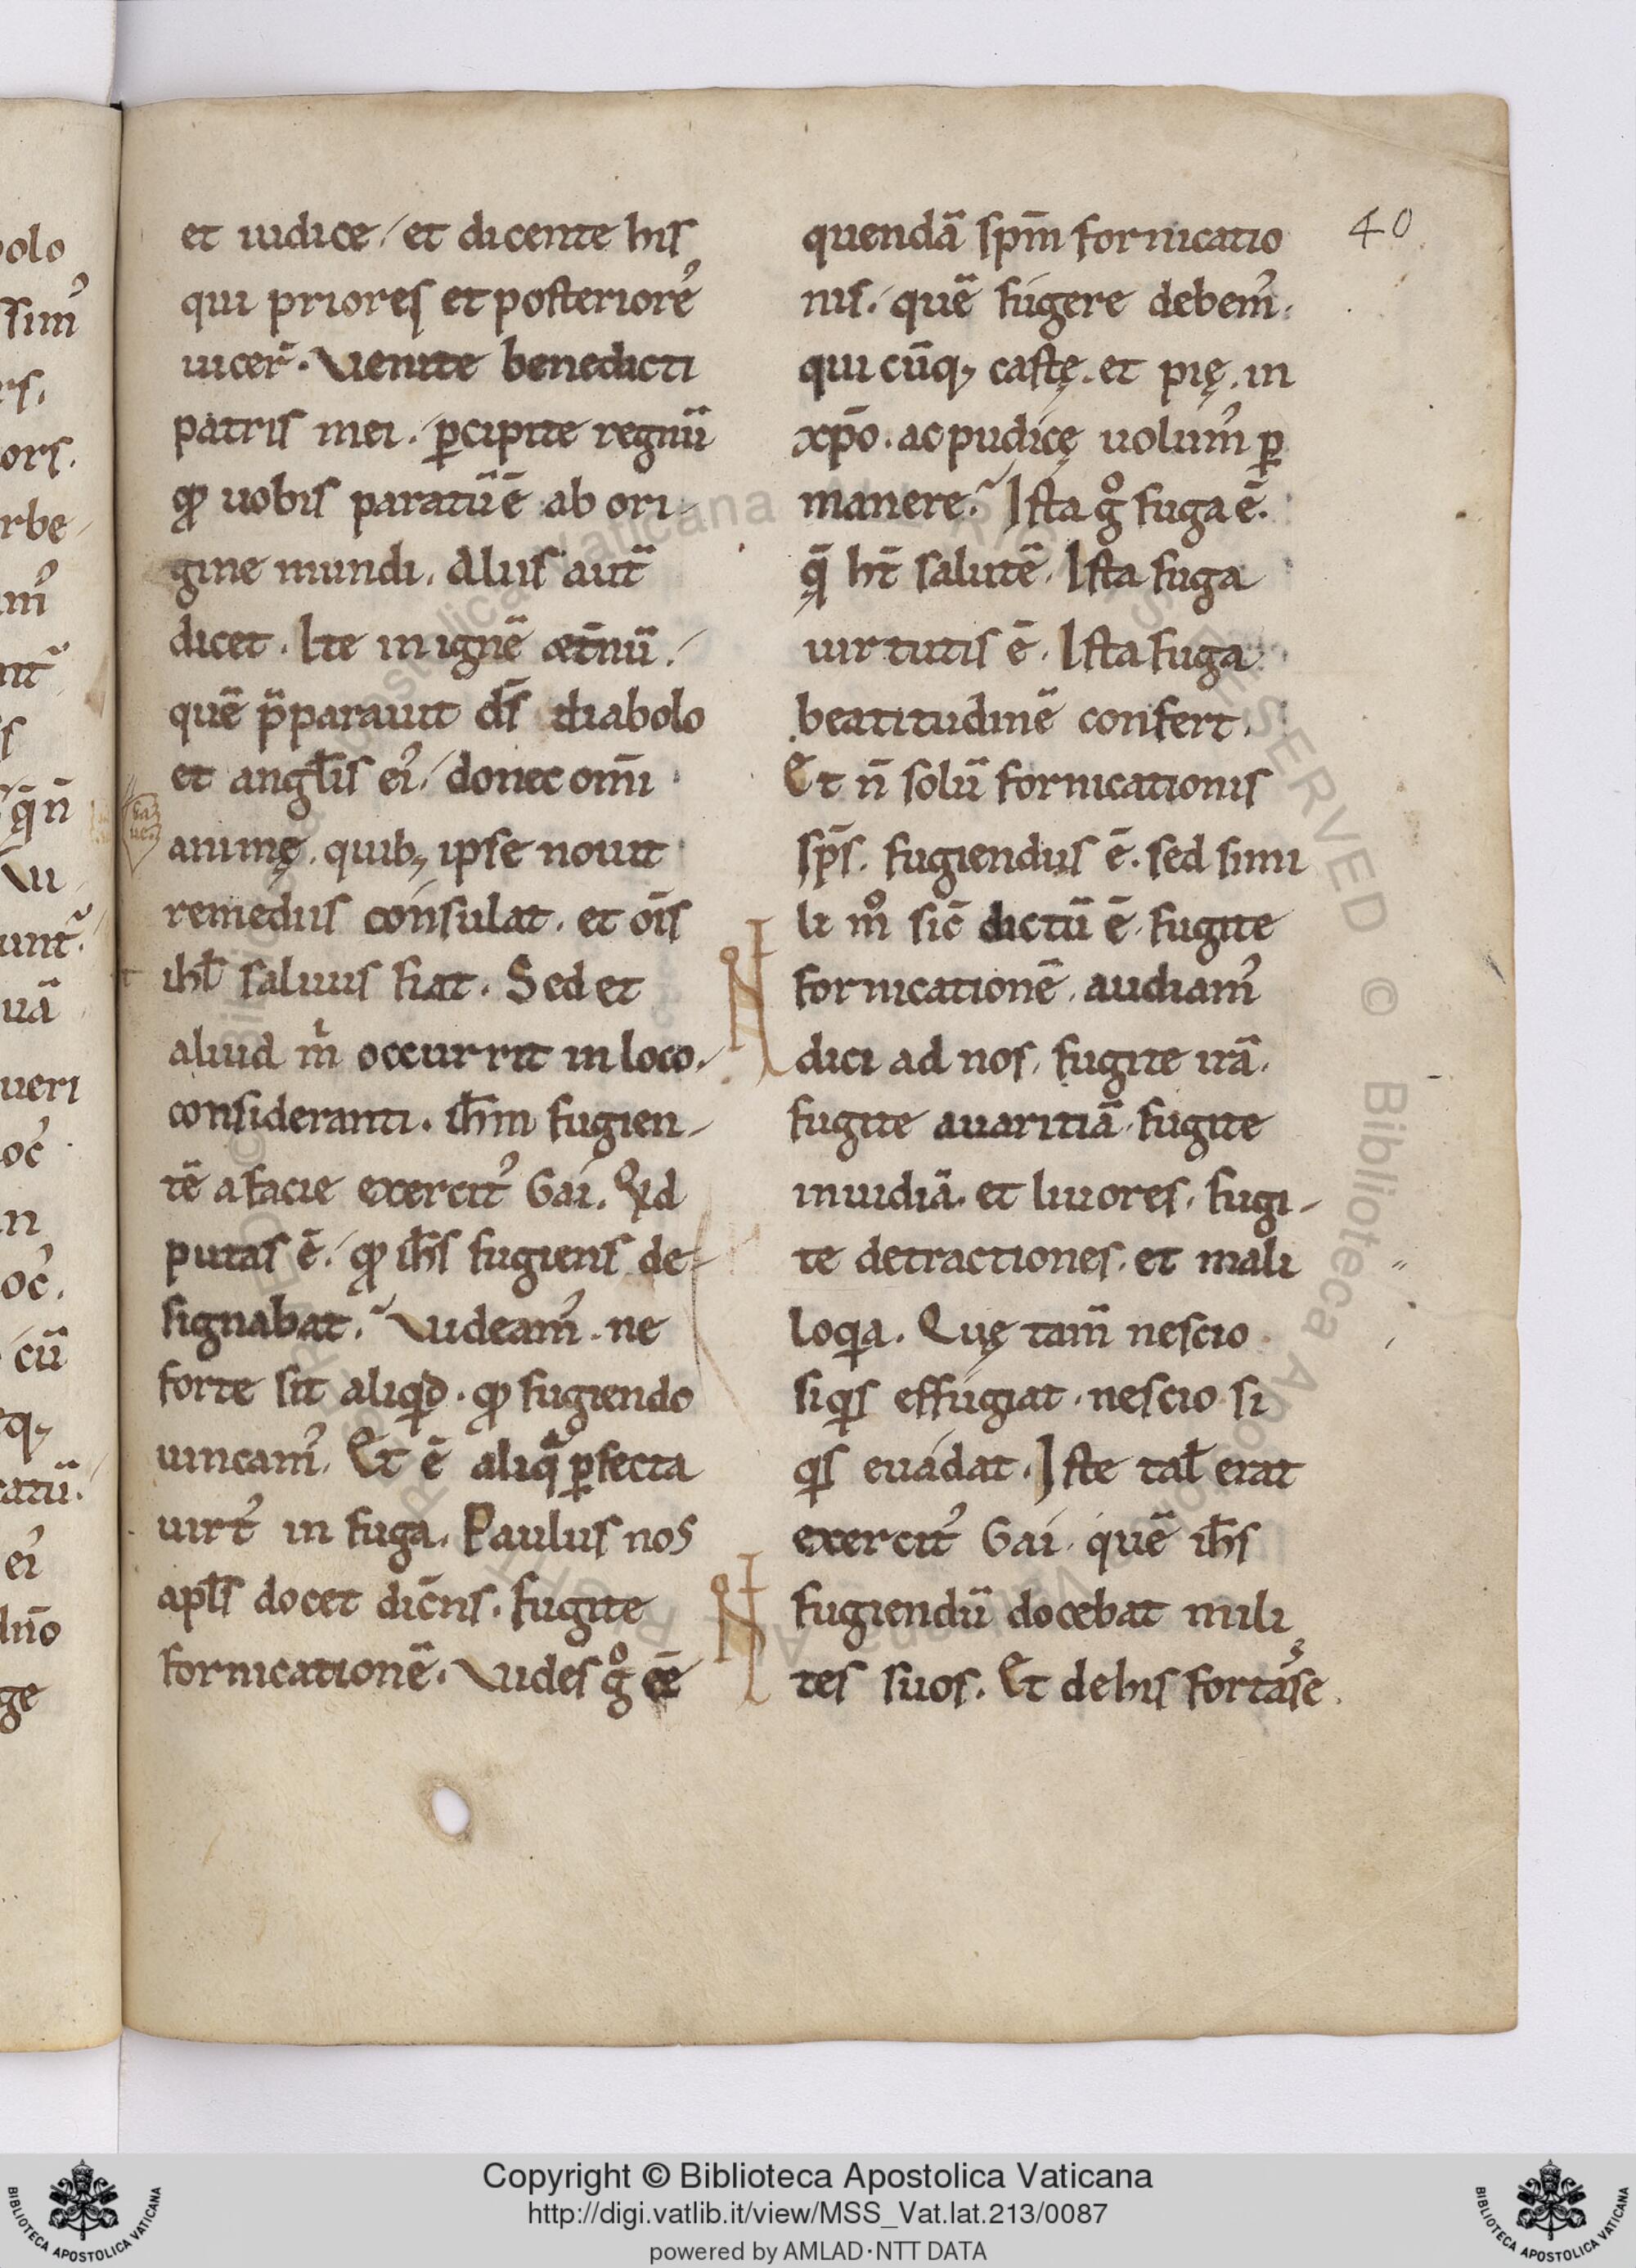 et iudice / et dicente his
qui priores et posterioreˀ
uicer̄. Venite benedicti
patris mei. ꝑcipite regnū
ꝙ uobis paratū ē ab ori-
gine mundi. Aliis aut̄
dicet. Ite in ignē æt̄nū.
quē p̄parauit ds̄ diabolo
et angl̄is eiˀ / donec om̄i
animę. quibꝫ ipse nouit
remediis consulat. et oīs
ihl̄ saluus fiat. Sed et
aliud m̍ occurrit in loco.
consideranti. ih̄m fugien-
tē a facie exercitˀ Gai. Qͥd
putas ē. ꝙ ih̄s fugiens de-
signabat. Videamˀ. ne
forte sit aliqͥd. ꝙ fugiendo
uincamˀ. Et ē aliqͣ ꝑfecta
uirtˀ in fuga. Paulus nos
apl̄s docet dicn̄s. fugite
fornicationē. Vides gͦ eē
40
quendā spm̄ fornicatio
nis. quē fugere debemˀ.
qui cūqꝫ castę. et pię. in
xp̄o. ac pudicę uolumˀ ꝑ
manere. Ista gͦ fuga ē.
q̄ ht̄ salutē. Ista fuga
uirtutis ē. Ista fuga
beatitudinē confert.
Et n̄ solū fornicationis
sps̄. fugiendus ē. sed simi
li mͦ sic̄ dictū ē. fugite
fornicationē. audiamˀ
dici ad nos. fugite irā.
fugite auaritiā. fugite
inuidiā. et liuores. fugi-
te detractiones. et mali
loqͥa. Quę tam̄ nescio
si qͥs effugiat. nescio si
qͥs euadat. Iste tal̄ erat
exercitˀ Gai. quē ih̄s
fugiendū docebat mili
tes suos. Et de his fortasse.
Copyright © Biblioteca Apostolica Vaticana
http://digi.vatlib.it/view/MSS_Vat.lat.213/0087
powered by AMLAD·NTT DATA
BIBLIOTECA APOSTOLICA VATICANA
BIBLIOTECA APOSTOLICA VATICANA